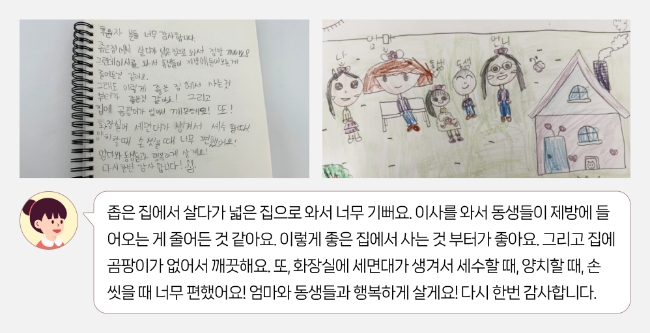 분들 너무 감사합니다
좁은집에서 살다가 넓은 집으로 와서
이사를 와서 동생들이 제방에 들어오는게
줄어든것 같아요.
그래도 이렇게 좋은 집에서 사는것
부터가 좋은것 같아요! 그리고
집에 곰팡이가 없어서 깨끗해요! 또!
화장실에 세면대가 생겨서 세수 할때,
양치할때 손씻을 때 너무 편했어요!
엄마와 동생들과 행복하게 살게요!
다시한번 감사합니다!
나
엄마
동생
언니
좁은 집에서 살다가 넓은 집으로 와서 너무 기뻐요. 이사를 와서 동생들이 제방에 들
어오는 게 줄어든 것 같아요. 이렇게 좋은 집에서 사는 것 부터가 좋아요. 그리고 집에
곰팡이가 없어서 깨끗해요. 또, 화장실에 세면대가 생겨서 세수할 때, 양치할 때, 손
씻을 때 너무 편했어요! 엄마와 동생들과 행복하게 살게요! 다시 한번 감사합니다.